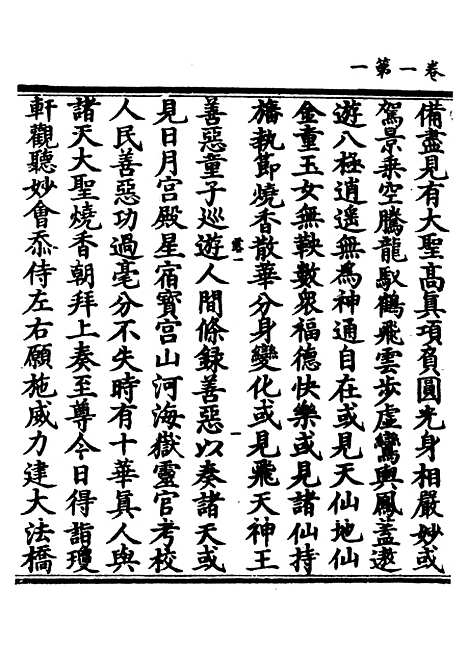 卷一第一
備盡見有大聖高真項負圓光身相嚴妙或
駕景乘空騰龍馭鶴飛雲步虛鸞輿鳳蓋遨
遊八極逍遥無為神通自在或見天仙地仙
金童玉女無鞅數眾福德快樂或見諸仙持
旛執節燒香散華分身變化或見飛天神王
善惡童子巡遊人間條録善惡以奏諸天或
見日月宮殿星宿寳宮山河海嶽靈官考校
人民善惡功過毫分不失時有十華真人與
諸天大聖燒香朝拜上奏至尊今日得詣瓊
軒觀聽妙會忝侍左右願施威力建大法橋